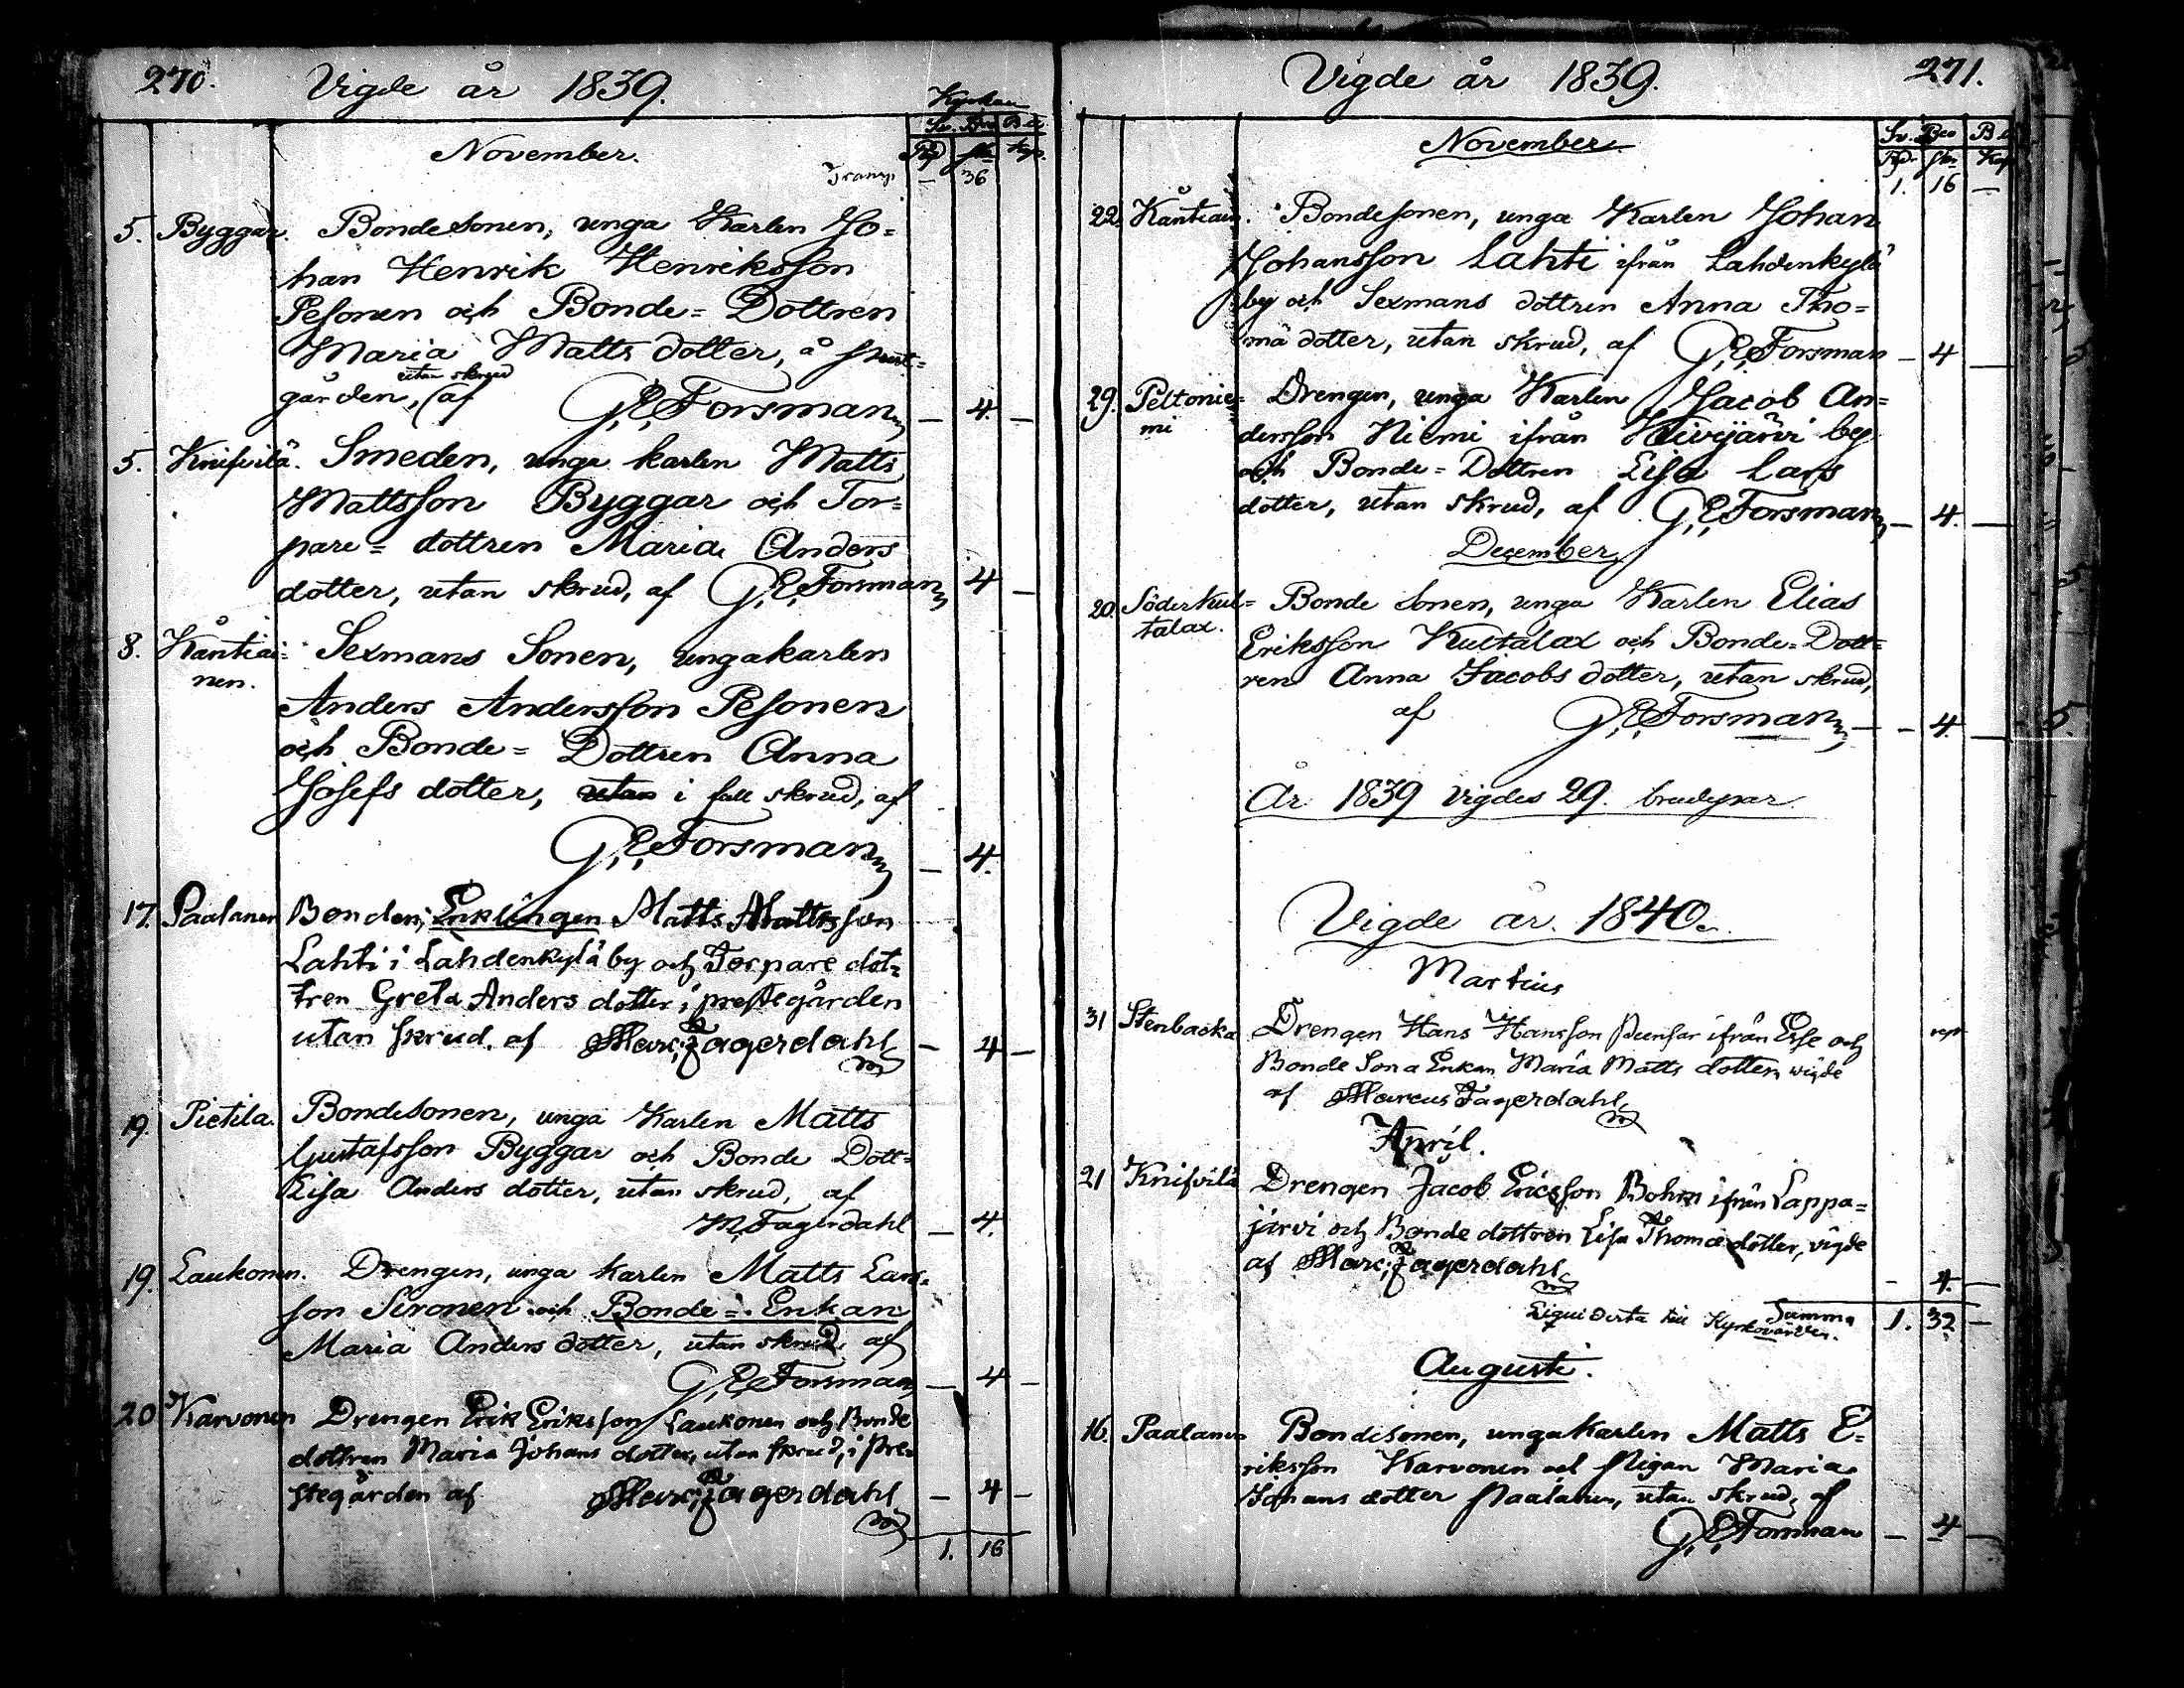 270.
Vigde år 1839.
Kyrkan
Sv. Bco B.A.
Rd sk. kop.
November.
Transp. — 36
5. Byggar. Bondesonen, unga Karlen Jo=
han Henrik Henriksson
Pesonen och Bonde=Dottren
Maria Matts dotter, å prest=
utan skrud
gården, (af G. E. Forsman — 4. —
5. Knifvilä. Smeden, unga karlen Matts
Mattsson Byggar och Tor=
pare=dottren Maria Anders
dotter, utan skrud, af G. E. Forsman 4 —
8. Kåntiai= Sexmans Sonen, ungakarlen
nen.
Anders Andersson Pesonen
och Bonde=Dottren Anna
Josefs dotter, utan i full skrud, af
G. E. Forsman — 4.
17. Paalanen Bonden, Enklingen Matts Mattsson
Lahti i Lahdenkylä by och Torpare dot=
tren Greta Anders dotter, i prestegården
utan skrud. af Marc: Fagerdahl — 4 —
19. Pietila. Bondesonen, unga Karlen Matts
Gustafsson Byggar och Bonde Dott=
Lisa Anders dotter, utan skrud, af
M. Fagerdahl — 4.
19. Laukonen. Drengen, unga Karlen Matts Lars=
son Sironen och Bonde=Enkan
Maria Anders dotter, utan skrud, af
G. E. Forsman — 4 —
20 Karvonen Drengen Erik Eriksson Laukonen och Bonde
dottren Maria Johans dotter, utan skrud, i Pre=
stegården af Marc: Fagerdahl — 4 —
1. 16
Vigde år 1839.
271.
Sv. Bco B.A.
Rd. sk. Kop
November
1. 16 —
22. Kåntiain. Bondesonen, unga Karlen Johan
Johansson Lahti ifrån Lahdenkylä
by och Sexmans dottren Anna Tho=
mä dotter, utan skrud, af G. E. Forsman — 4 —
29. Peltonie= Drengen, unga Karlen Jacob An=
mi
dersson Niemi ifrån Kivijärvi by
och Bonde=Dottren Lisa Lars
dotter, utan skrud, af G. E. Forsman — 4. —
December
20. Söderkul= Bonde Sonen, unga Karlen Elias
talax.
Eriksson Kultalax och Bonde=Dott=
ren Anna Jacobs dotter, utan skrud,
af G. E. Forsman — 4. —
År 1839 vigdes 29. brudepar
Vigde år. 1840.
Martius
31 Stenbacka Drengen Hans Hansson Punsar ifrån Esse och
Bonde Sona Enkan Maria Matts dotter, wigde
af Marcus Fagerdahl
April.
21 Knifvilä Drengen Jacob Ericsson Bohm ifrån Lappa=
järvi och Bonde dottren Lisa Thomæ dotter, vigde
af Marc: Fagerdahl — 4. —
Summa
Liquiderta till Kyrkovärden. 1. 32 —
Augusti.
16. Paalanen Bondesonen, ungakarlen Matts E=
riksson Karvonen och Pigan Maria
Johans dotter Paalanen, utan skrud, af
G. E. Forsman — 4 —